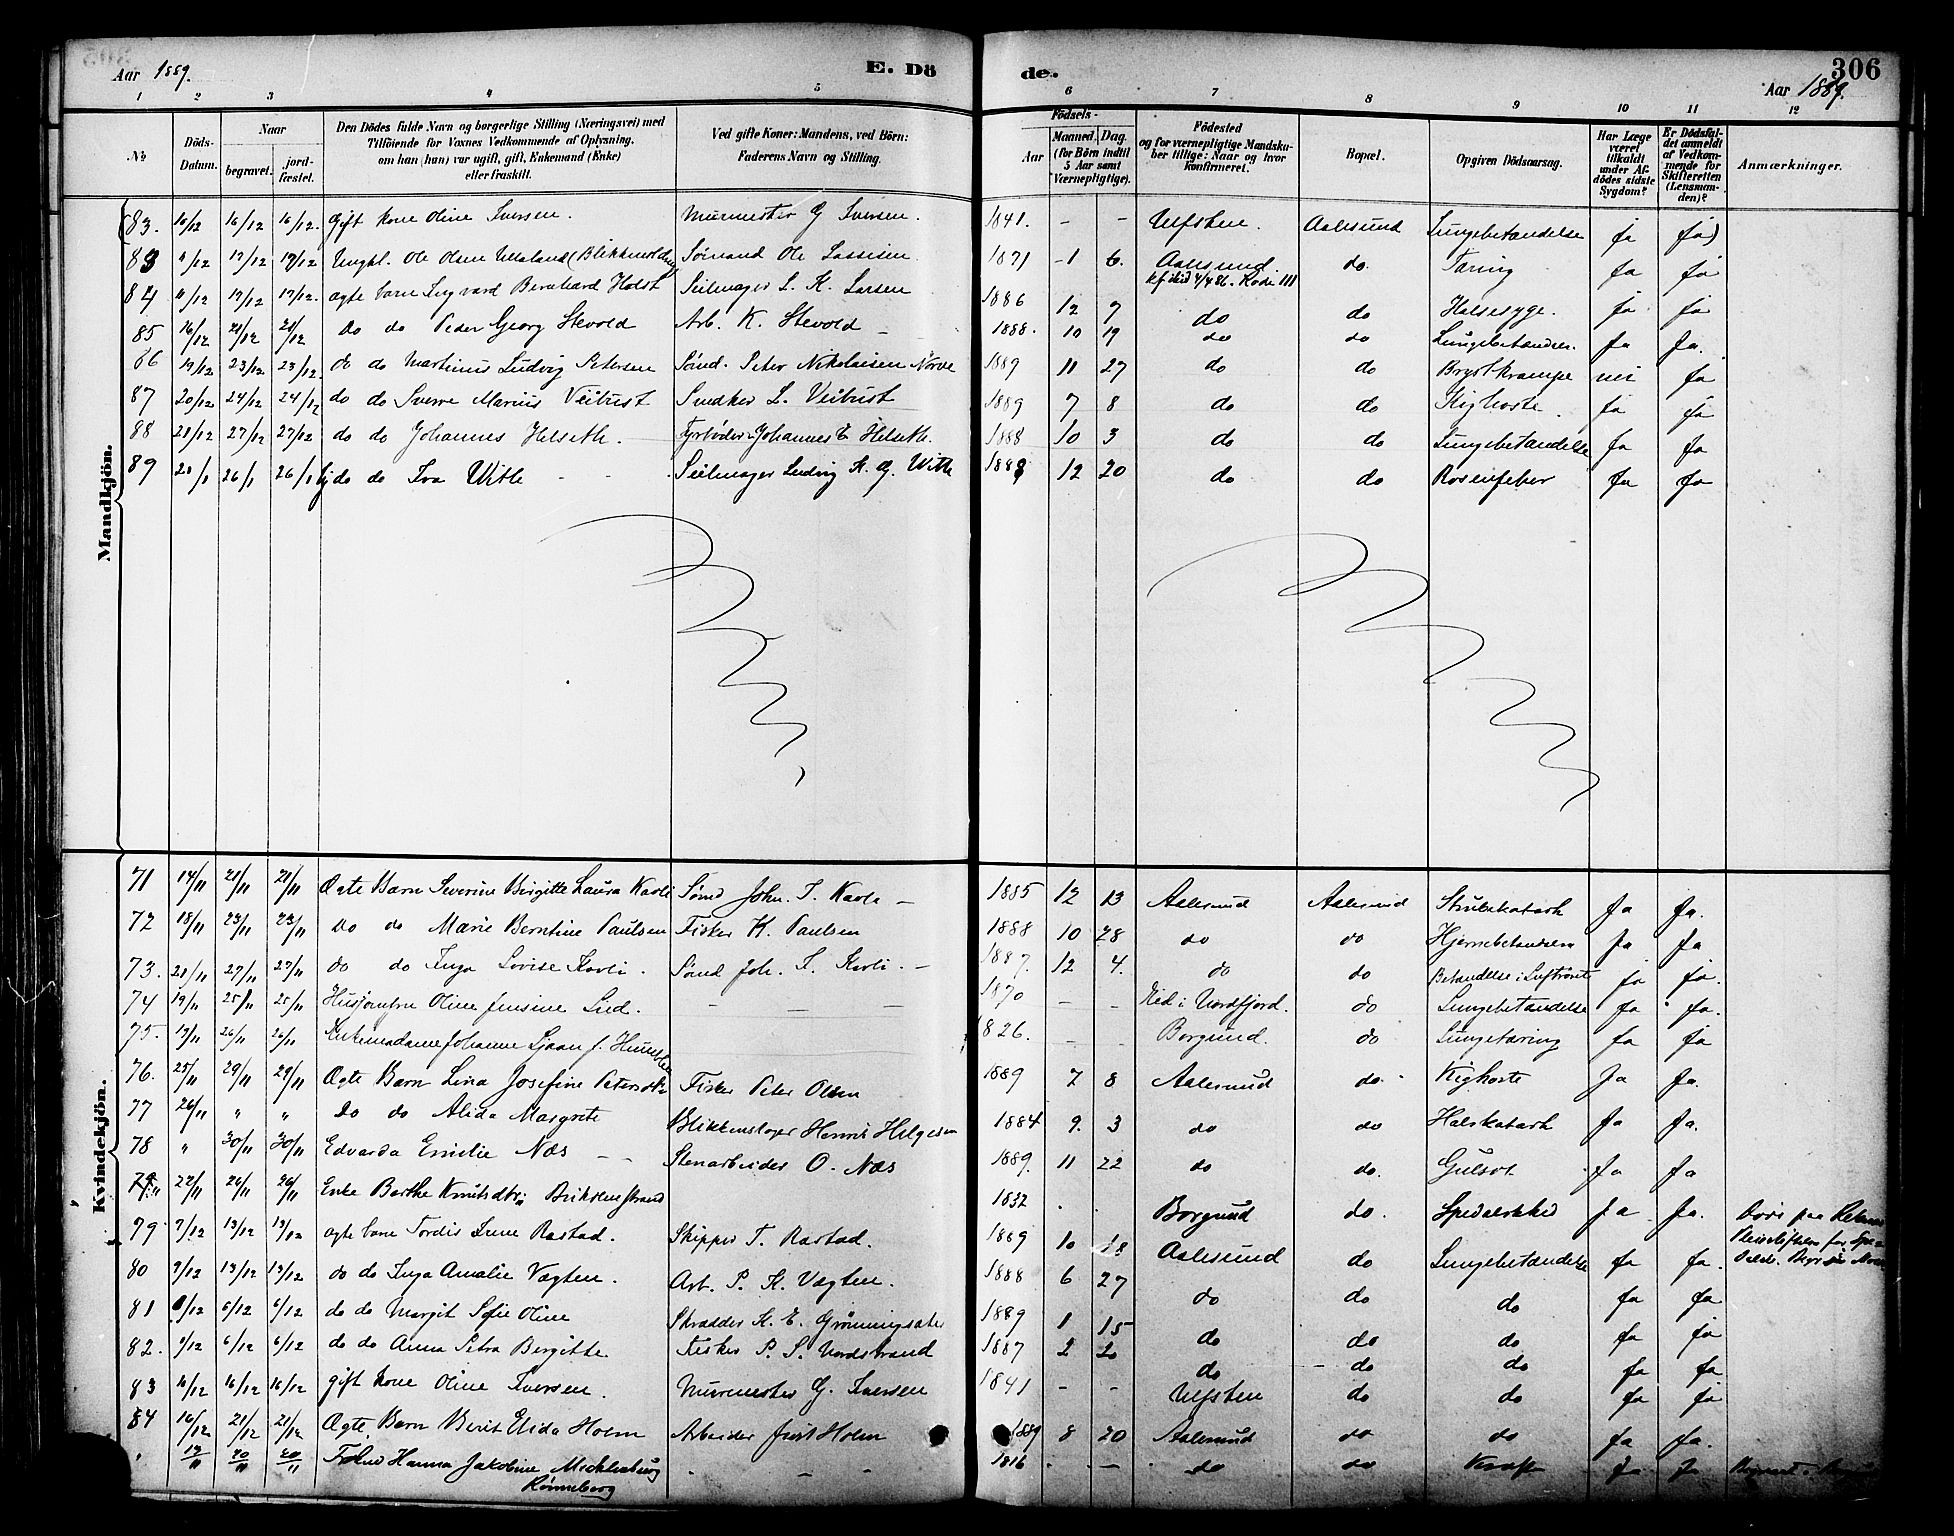 Aar 1889.
E. Dö
de.
306
Aar 1889.
1 2 3 4 5 6 7 8 9 10 11 12
No
Döds-Datum.
Naar
begravet.
jord-fæstet.
Den Dödes fulde Navn og borgerlige Stilling (Næringsvei) med
Tilföiende for Voxnes Vedkommende af Oplysning,
om han (hun) var ugift, gift, Enkemand (Enke)
eller fraskilt.
Ved gifte Koner: Mandens, ved Börn:
Faderens Navn og Stilling.
Födsels-
Aar
Maaned. Dag.
(for Børn indtil
5 Aar samt
Værnepligtige).
Födested
og for værnepligtige Mandsku-
ber tillige: Naar og hvor
konfirmeret.
Bopæl.
Opgiven Dödsaarsag.
Har Læge
været
tilkaldt
under Af-
dödes sidste
Sygdom?
Er Dödsfal-
det anmeldt
af Vedkom-
mende for
Skifteretten
(Lensman-
den)?
Anmærkninger.
Mandkjön.
(83. 10/12 16/12 16/12. Gift kone Oline Iversen. Murmester G Iversen. 1841. - - Ulfsten. Aalesund Lungebetændelse ja ja)
83 11/12 17/12 17/12 Ungkl. Ole Olsen (Blikkensl. Sømand Ole 1871 - 1 6. Aalesund do. Tæring ja ja
84 11/12 17/12 17/12. ægte barn Ingvard Bernhard Holst Seilmager L. K. Larsen 1886 12 7 do do Halssyge. ja ja
85 16/12 21/12 21/12 do do Peder Georg Stevold Arb. K. Stevold - 1888. 10 19 do do Lungebetændes. ja ja.
86 19/12 23/12 23/12. do do Martinus Ludvig Petersen Sømd. Peter Nikolaisen Nørve 1889 11 27 do do Brystkrampe nei ja
87 20/12 24/12 24/12 do do Sverre Marius Veibust Snedker L. Veibust 1889 7 8 do do Kighoste. ja ja
88 21/12 27/12 27/12 do do Johannes Helseth. - Fyrbøder Johannes E Helseth. 1888 10 3 do do Lungebetændelse ja ja
89 20/1 26/1 26/1 do do Iva Witte - - . Seilmager Ludvig K. G. Witte 1888 12 20 do do Rosenfeber ja ja
Kvindekjön.
71 14/11 21/11 21/11 Ægte Barn Severine Birgitte Laura Kavli Sømd John. I. Kavli - 1885 12 13 Aalesund Aalesund Strubekatarh ja ja.
72 18/11 23/11 23/11 do do Marie Berntine Paulsen Fisker K. Paulsen 1888 10 28 do do Hjernebetændelse ja ja
73. 21/11 27/11 27/11 do do Inga Lovise Kavli. Sømd Joh. I. Kavli. - 1887. 12 4. do do Betændelse i Luftrøret ja ja.
74 19/11 25/11 25/11 Husjomfru Oline Jensine Lied. - - - 1870 - - Eid i Nordfjord. do Lungebetændelse ja ja.
75. 19/11 26/11 26/11 Enkemadame Johanne Sjaan f. 1826. - - Borgund. do Lungetæring ja ja
76. 25/11 29/11 29/11 Ægte Barn Lina Josefine Petersdtr Fisker Peter Olsen 1889 7 8 Aalesund do. Kighoste ja ja.
77 26/11 " " do do Alida Margrete Blikkenslager Henrik Helgesen 1884 9. 3 do do Halskatarh ja ja.
78 " 30/11 30/11 Edvarda Emilie Næs - - Stenarbeider O. Næs 1889. 11 22 do do. Gulsot. ja ja
79. 22/11 26/11 26/11 Enke Berthe Knutsdtr. 1832 . . Borgund do. Spedalskhed ja ja. Døde paa
79 7/12 13/12 13/12 ægte barn Tordis Rastad. Skipper T. Rastad. 1889 10 18 Aalesund do Lungebetændelse ja ja.
80 9/12 13/12 13/12 do do Inga Amalie Vægten. Arb. P. K. Vægten. 1888 6 27 do do do ja ja
81 1/12 6/12 6/12 do do Margit Sofie Oline Skrædder K. E. Grønningsæter 1889 1 15 do do do ja ja
82. 1/12 6/12 6/12 do do Anna Petra Bergitte Fisker P. S. Nordstrand 1887 2 20 do do do ja ja.
83 10/12 16/12 16/12 gift kone Oline Iversen. Murmester G. Iversen 1841 - - Ulfsten do do ja ja
84 16/12 21/12 21/12 Ægte Barn Berit Elida Holm Arbeider Holm 1889 8 20 Aalesund do do ja ja.
" 12/11 20/11 20/11 Hanna Jakobine Mecklenburg Rønneberg - - - 1816 - - do do Kræft ja ja